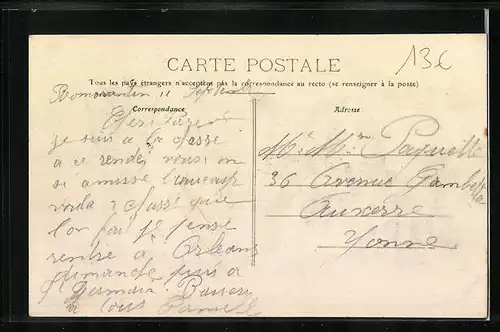 13€
CARTE POSTALE
Tous les pays étrangers n'acceptent pas la correspondance au recto (se renseigner à la poste)
Romorantin 11 Septembre
Correspondance
Adresse
Chers Parents
je suis a la chasse
a ce rendez vous on
si amuse beaucoup
voila chasse que
l'on fait je pense
rentré a Orléans
dimanche puis a
Baisers
a tous
Me Mme Paquette
36 Avenue Gambetta
Auxerre
Yonne